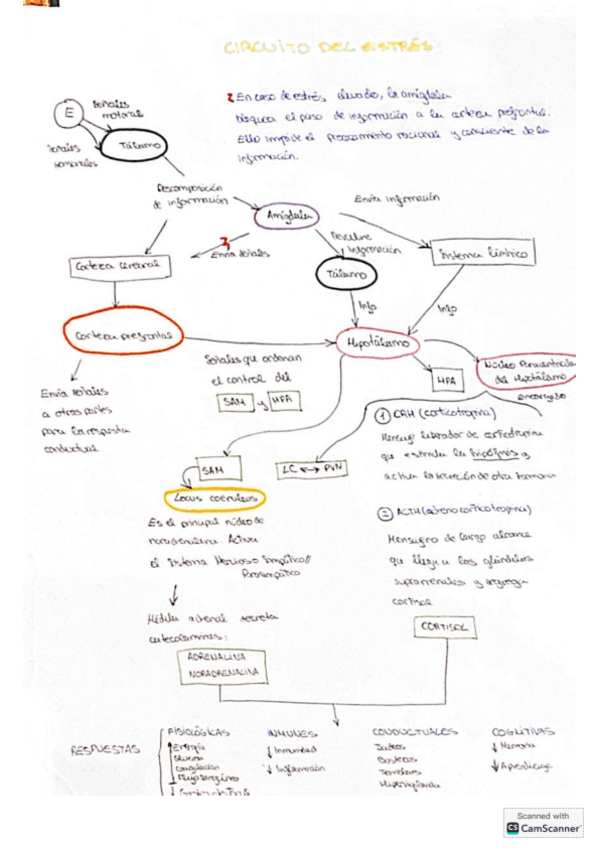 CIRCUITO DEL ESTRÉS
E
señales
motoras
señales
sensoriales
Tálamo
En caso de estrés elevado, la amígdala
bloquea el paso de información a la corteza prefrontal.
Ello impide el procesamiento racional y consciente de la
información.
Descomposición
de información
Amígdala
Envía información
Envía señales
Devuelve
información
Corteza cerebral
Tálamo
Sistema límbico
Info
Info
Corteza prefrontal
Hipotálamo
Señales que ordenan
el control del
SAM y HPA
HPA
Núcleo Paraventricular
del Hipotálamo
encargado
Envía señales
a otras partes
para la respuesta
conductual
1 CRH (corticotropina)
Mensaje liberador de corticotropina
que estimula la hipófisis y
activa la secreción de otra hormona
SAM
LC ↔ PVN
Locus coeruleus
Es el principal núcleo de
noradrenalina. Activa
el Sistema Nervioso Simpático//
Parasimpático
2 ACTH (adrenocorticotropina)
Mensajero de largo alcance
que llega a las glándulas
suprarrenales y segrega
cortisol
Médula adrenal secreta
catecolaminas:
ADRENALINA
NORADRENALINA
CORTISOL
RESPUESTAS
FISIOLÓGICAS
Energía
Glucosa
Coagulación
Flujo sanguíneo
INMUNES
↓ Inmunidad
↓ Inflamación
CONDUCTUALES
Sudores
Bostezos
Temblores
Hipervigilancia
COGNITIVAS
↓ Memoria
↓ Aprendizaje
Scanned with
CS CamScanner